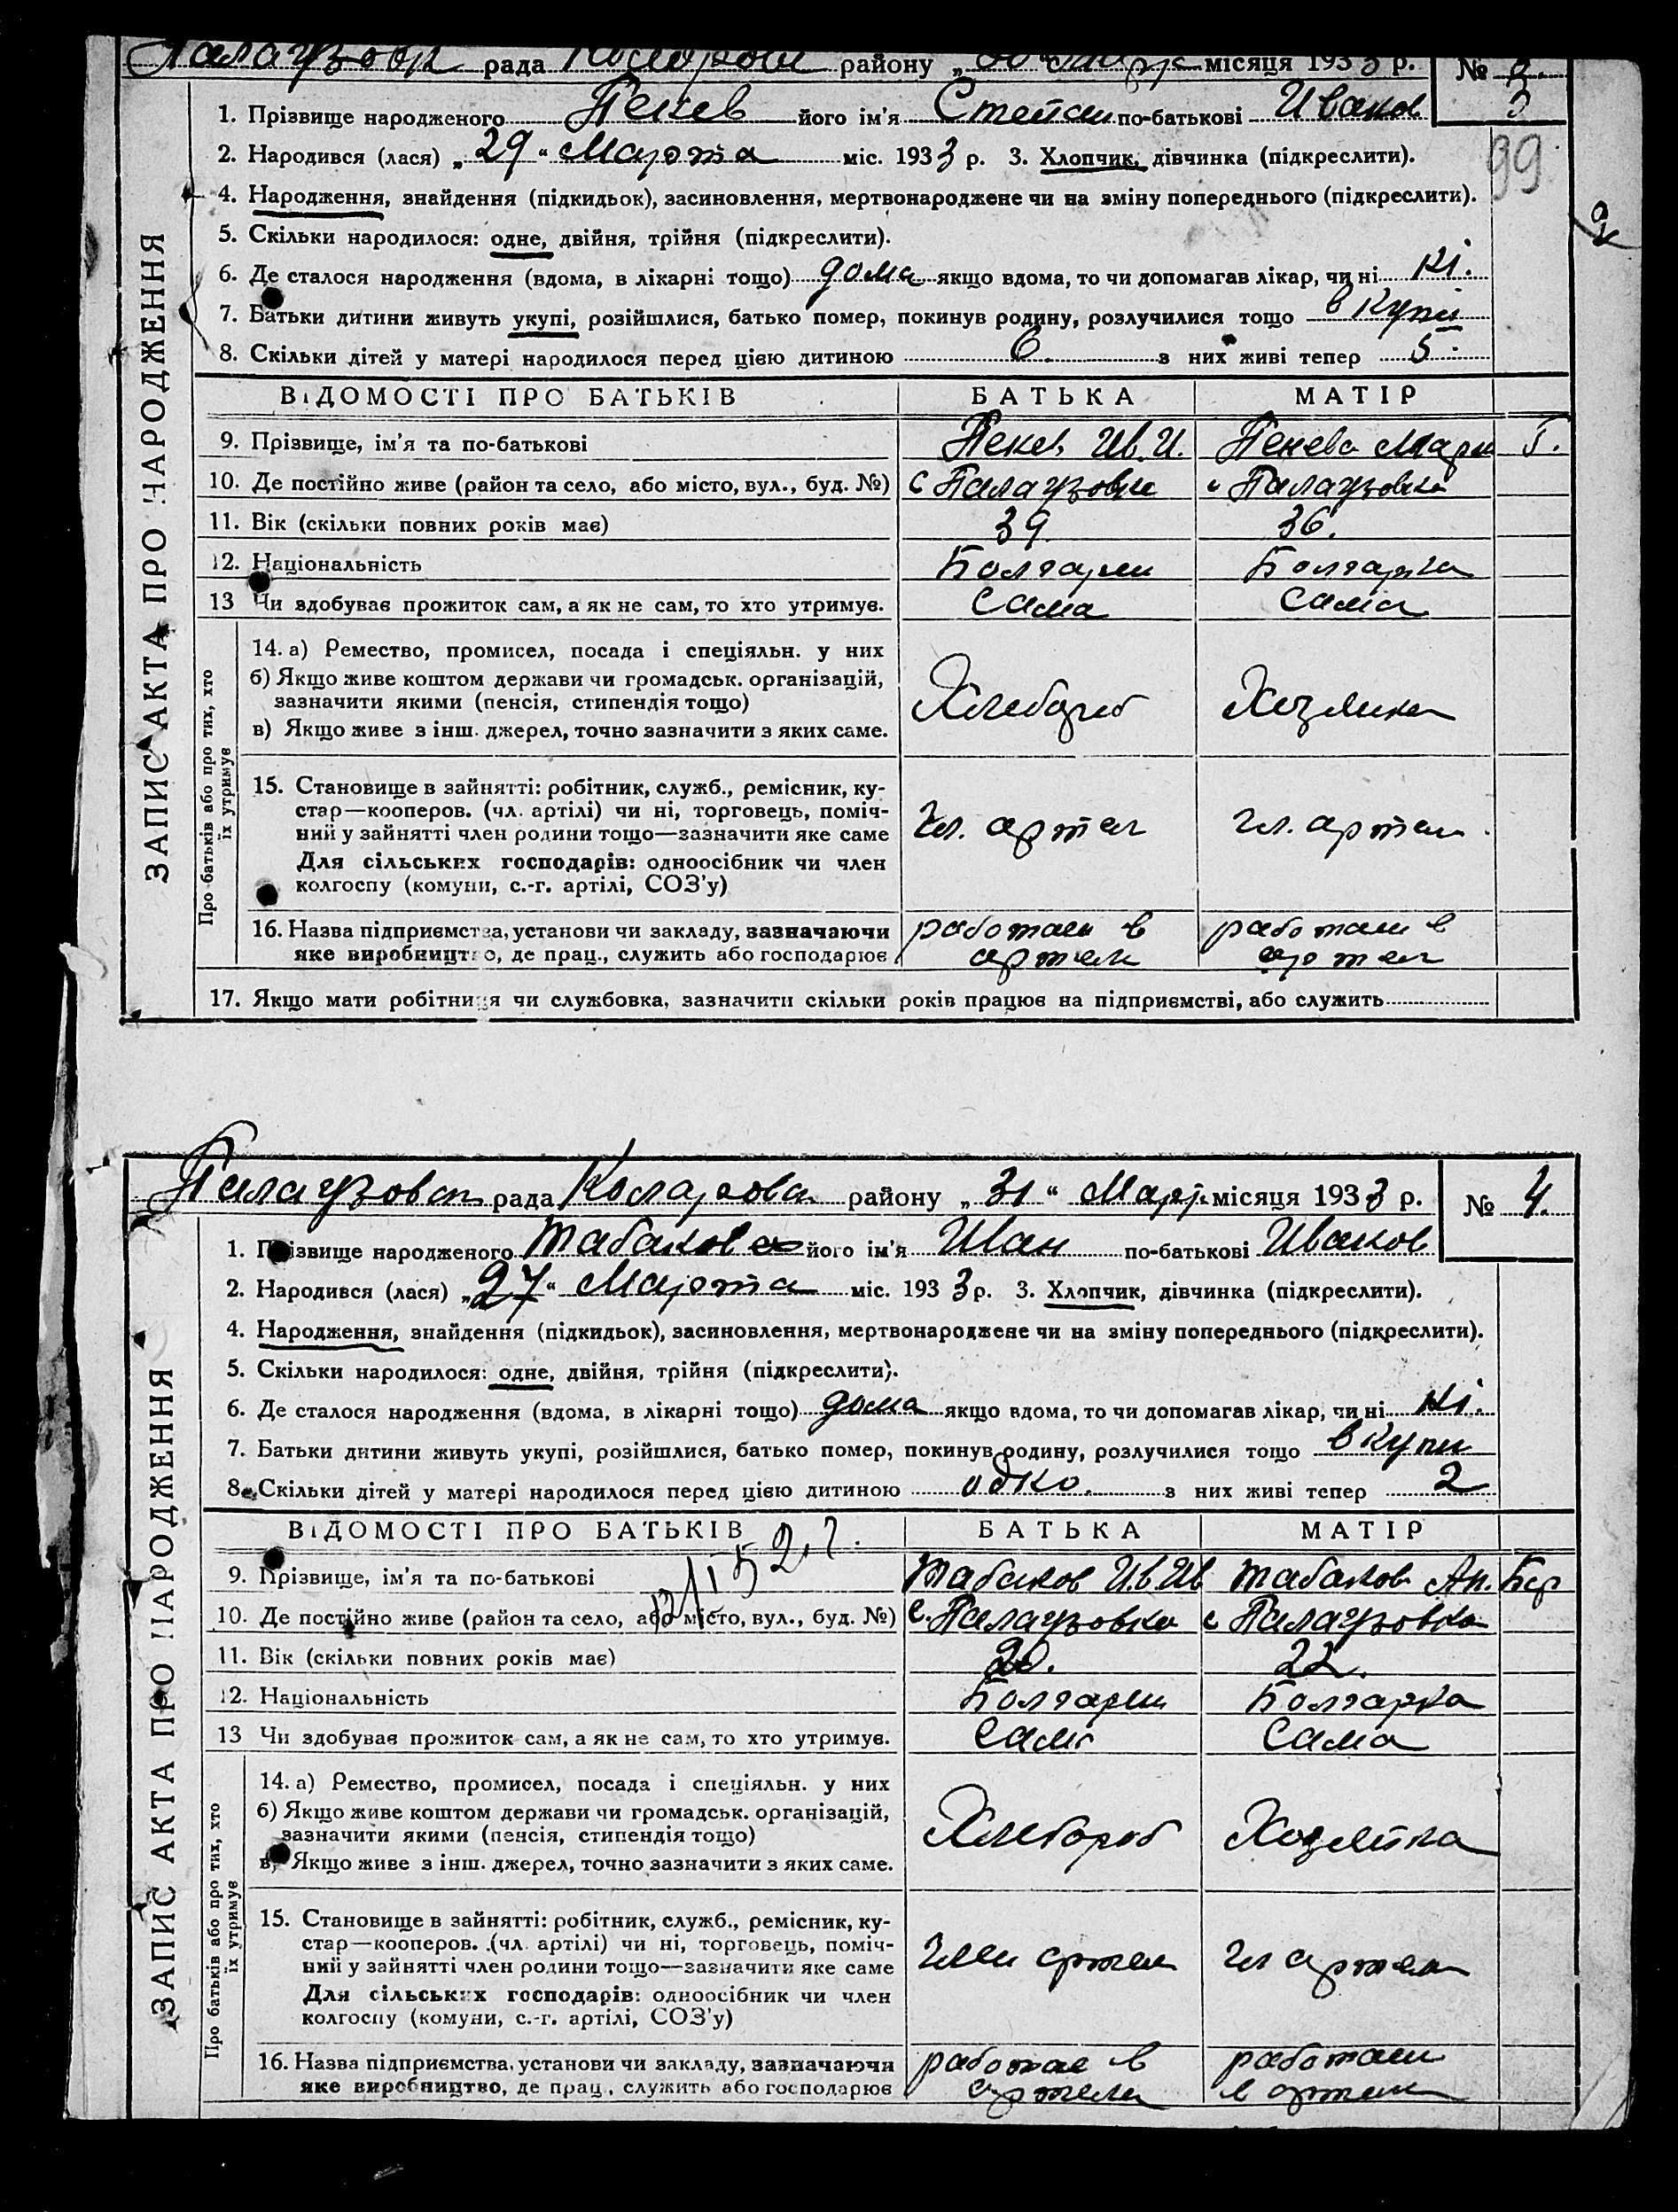 Палаузовск рада Коларовск району „30“ Март місяця 1933 р. № 3.
3
1. Прізвище народженого Пекев його ім'я Степан по-батькові Иванов
99
2. Народився (лася) „29“ Марта міс. 1933 р. 3. Хлопчик, дівчинка (підкреслити).
4. Народження, знайдення (підкидьок), засиновлення, мертвонароджене чи на зміну попереднього (підкреслити).
5. Скільки народилося: одне, двійня, трійня (підкреслити).
6. Де сталося народження (вдома, в лікарні тощо) дома якщо вдома, то чи допомагав лікар, чи ні ні.
7. Батьки дитини живуть укупі, розійшлися, батько помер, покинув родину, розлучилися тощо в купі
8. Скільки дітей у матері народилося перед цією дитиною 6. з них живі тепер 5.
ВІДОМОСТІ ПРО БАТЬКІВ БАТЬКА МАТІР
9. Прізвище, ім'я та по-батькові Пекев Ив. И. Пекева Мари Г.
10. Де постійно живе (район та село, або місто, вул., буд. №) с Палаузовка с Палаузовка
11. Вік (скільки повних років має) 39. 36.
12. Національність Болгарин Болгарка
13 Чи здобуває прожиток сам, а як не сам, то хто утримує. Сама Сама
14. а) Ремество, промисел, посада і спеціяльн. у них
б) Якщо живе коштом держави чи громадськ. організацій,
зазначити якими (пенсія, стипендія тощо) Хлебороб Хозяика
в) Якщо живе з інш. джерел, точно зазначити з яких саме.
15. Становище в зайнятті: робітник, служб., ремісник, ку-
стар—кооперов. (чл. артілі) чи ні, торговець, поміч-
ний у зайнятті член родини тощо—зазначити яке саме чл. артел чл. артели
Для сільських господарів: одноосібник чи член
колгоспу (комуни, с.-г. артілі, СОЗ'у)
16. Назва підприємства, установи чи закладу, зазначаючи работаи в работаи в
яке виробництво, де прац., служить або господарює артели артел
17. Якщо мати робітниця чи службовка, зазначити скільки років працює на підприємстві, або служить
ЗАПИС АКТА ПРО НАРОДЖЕННЯ
Про батьків або про тих, хто
їх утримує
Палаузовск рада Коларовск району „31“ Март місяця 1933 р. № 4.
1. Прізвище народженого Табаков його ім'я Иван по-батькові Иванов
2. Народився (лася) „27“ Марта міс. 1933 р. 3. Хлопчик, дівчинка (підкреслити).
4. Народження, знайдення (підкидьок), засиновлення, мертвонароджене чи на зміну попереднього (підкреслити).
5. Скільки народилося: одне, двійня, трійня (підкреслити).
6. Де сталося народження (вдома, в лікарні тощо) дома якщо вдома, то чи допомагав лікар, чи ні ні.
7. Батьки дитини живуть укупі, розійшлися, батько помер, покинув родину, розлучилися тощо в купи
8. Скільки дітей у матері народилося перед цією дитиною одно. з них живі тепер 2
ВІДОМОСТІ ПРО БАТЬКІВ БАТЬКА МАТІР
9. Прізвище, ім'я та по-батькові Табаков Ив. Ив Табакова Ан.
10. Де постійно живе (район та село, або місто, вул., буд. №) с. Палаузовка с Палаузовка
11. Вік (скільки повних років має) 20. 22.
12. Національність Болгарин Болгарка
13 Чи здобуває прожиток сам, а як не сам, то хто утримує. Сам Сама
14. а) Ремество, промисел, посада і спеціяльн. у них
б) Якщо живе коштом держави чи громадськ. організацій,
зазначити якими (пенсія, стипендія тощо) Хлебороб Хозяйка
в) Якщо живе з інш. джерел, точно зазначити з яких саме.
15. Становище в зайнятті: робітник, служб., ремісник, ку-
стар—кооперов. (чл. артілі) чи ні, торговець, поміч-
ний у зайнятті член родини тощо—зазначити яке саме член артели чл артели
Для сільських господарів: одноосібник чи член
колгоспу (комуни, с.-г. артілі, СОЗ'у)
16. Назва підприємства, установи чи закладу, зазначаючи работае в работаи
яке виробництво, де прац., служить або господарює артели в артели
ЗАПИС АКТА ПРО НАРОДЖЕННЯ
Про батьків або про тих, хто
їх утримує